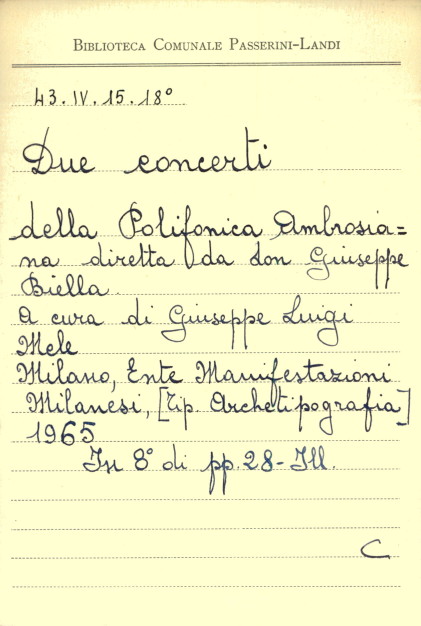 BIBLIOTECA COMUNALE PASSERINI-LANDI
43.IV.15.18°
Due concerti
della Polifonica Ambrosia=
na diretta da don Giuseppe
Biella.
A cura di Giuseppe Luigi
Mele
Milano, Ente Manifestazioni
Milanesi, [Tip. Archetipografia]
1965
In 8° di pp. 28 - Ill.
C